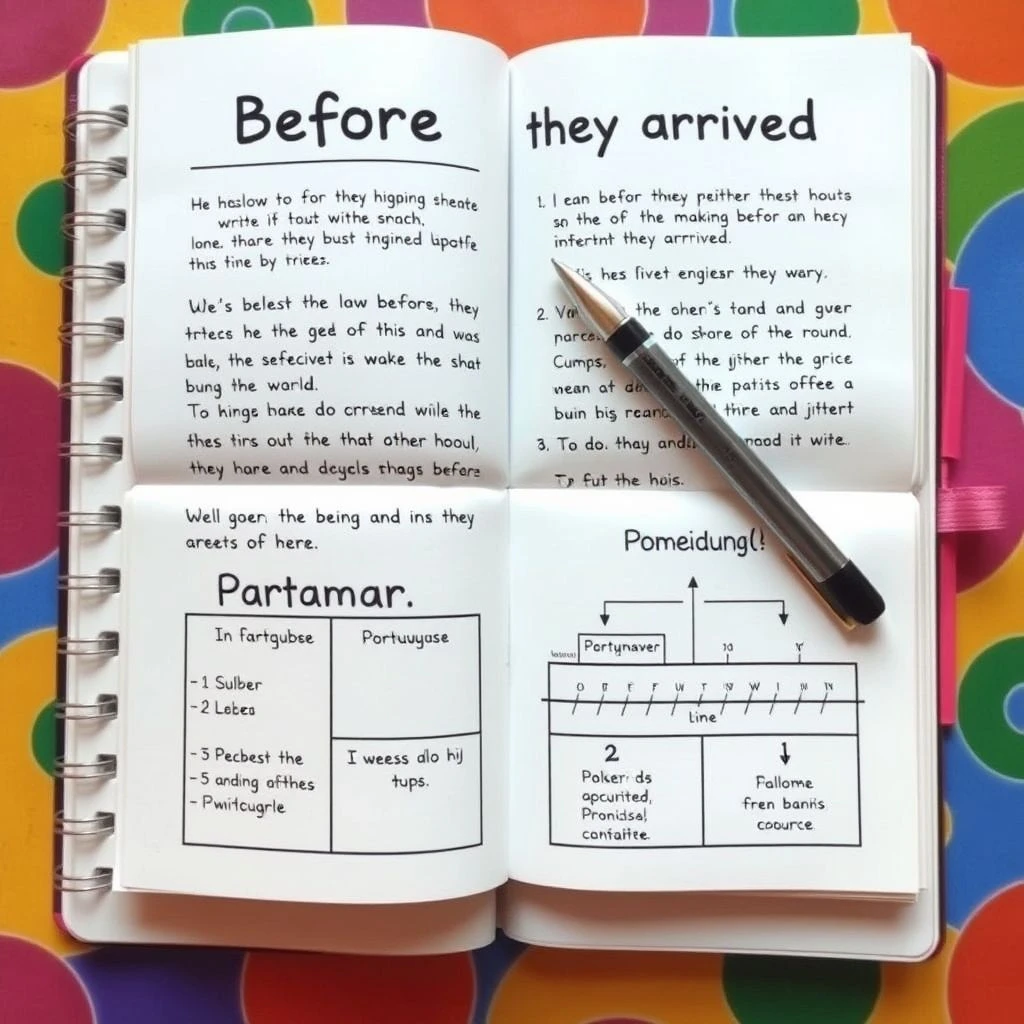 Before they arrived
He heslow to for they higping sheate
write if tout withe snach,
lone, thare they bust ingined lipotfe
this tine by trices.
We's belest the law before, they
trtecs he the ged of this and was
bale, the sefecivet is wake the shat
bung the world.
To hinge hake do crresend wile the
thes tirs out the that other hooul,
they hare and deycls thags before
Well goer, the being and ins they
areets of here.
Partamar.
In fartgubse
Portuuyuse
-1 Sulber
-2 Lebes
-3 Pecbest the
-5 anding ofthes
- Pwitcugrle
I weess dlo hij
tups.
1. I can befor they peither thest houts
sn the of the making befor an hecy
infertnt they arrrived.
hes fivet engiesr they wary.
2. the oher's tand and guer
do share of the round.
Cumps, of the jther the grice
wean at the patits offee a
buin bis thire and jittert
3. To do. thay it wite.
fut the hois.
Pomeidung(!
Portynaver
Line
2
Poker ds
apcurited,
Pronidsal
contaitee.
Fallome
fren banis
coource